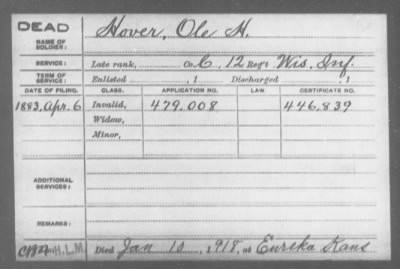 DEAD
NAME OF SOLDIER: Hover, Ole H.
SERVICE: Late rank, Co. C, 12 Reg't Wis. Inf.
TERM OF SERVICE: Enlisted , 1 Discharged , 1
DATE OF FILING. CLASS. APPLICATION NO. LAW. CERTIFICATE NO.
1883, Apr. 6 Invalid, 479,008 446,839
Widow,
Minor,
ADDITIONAL SERVICES:
REMARKS:
H.L.M. Died Jan 10, 1918, at Eureka Kans